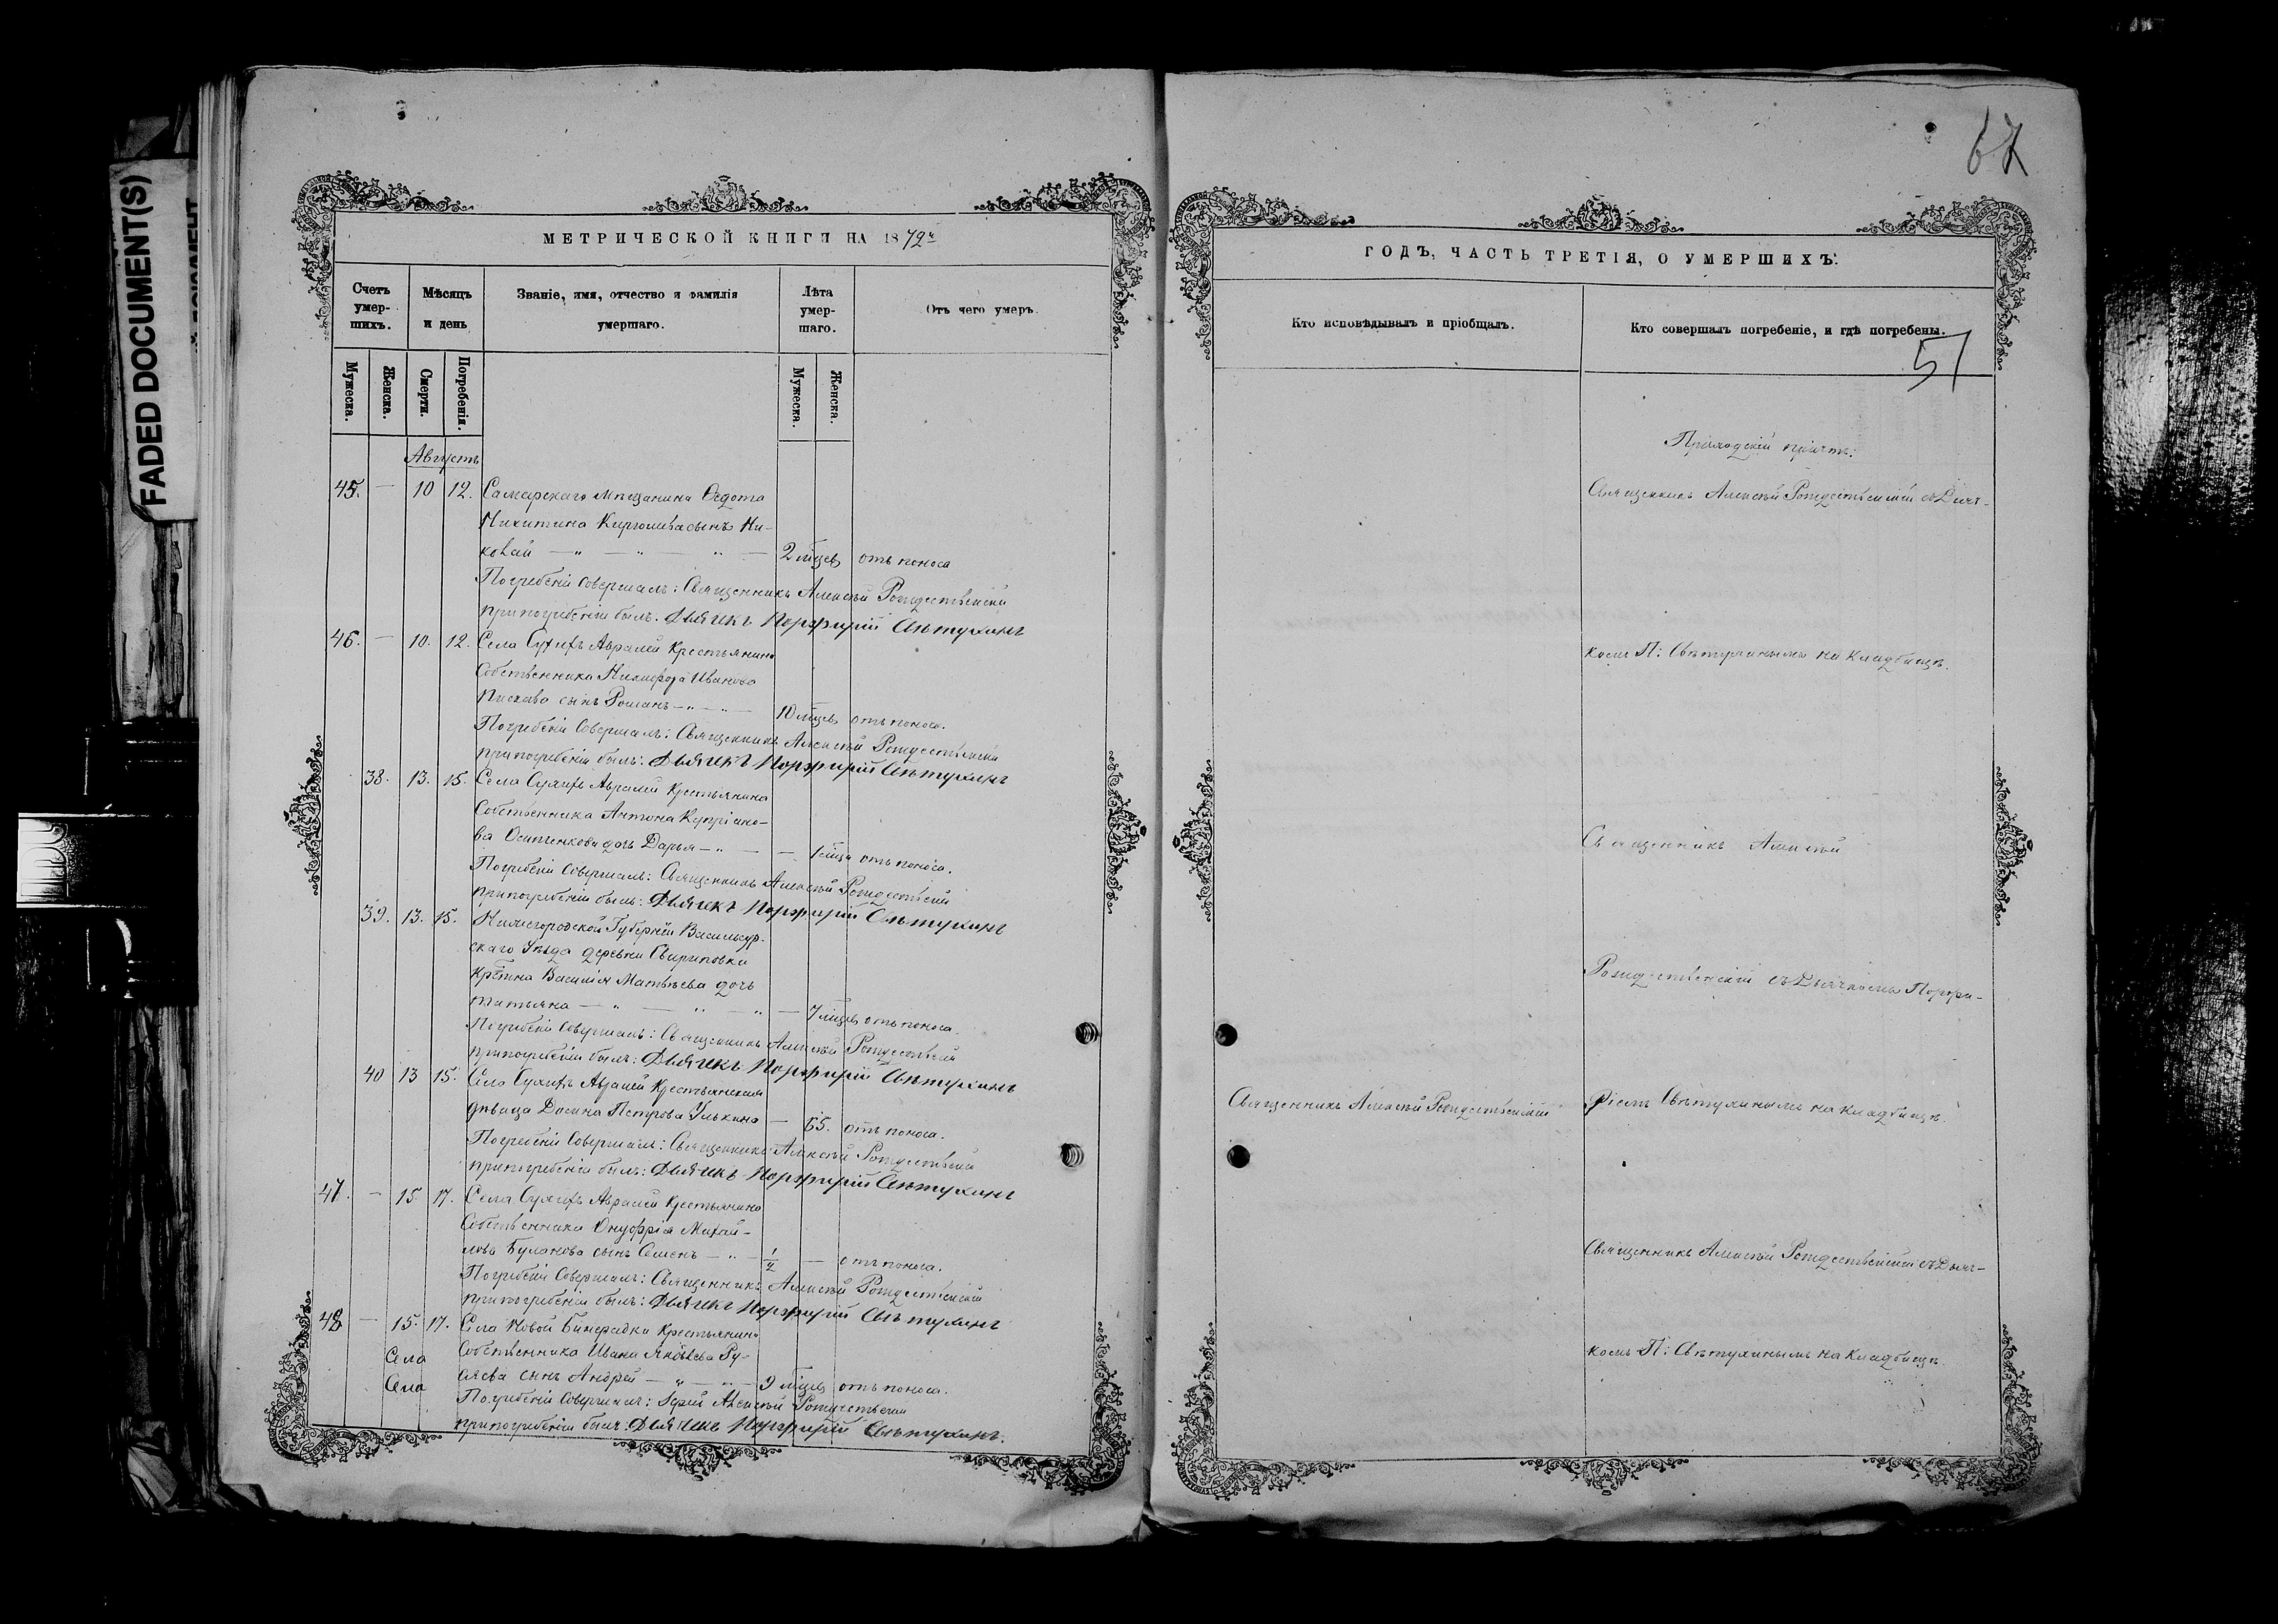 FADED DOCUMENT(S)
МЕТРИЧЕСКОЙ КНИГИ НА 1872й
Счетъ умер-шихъ.
Мѣсяцъ и день
Званіе, имя, отчество и фамилія умершаго.
Лѣта умер-шаго.
Отъ чего умеръ.
Мужеска.
Женска.
Смерти.
Погребенія.
Мужеска.
Женска.
Августъ
45. — 10 12. Самарскаго мѣщанина Ѳедота
Никитина сынъ Ни-
колай — „ — „ — „ — 2 мѣсц. отъ поноса
Погребеніе совершалъ: Священникъ Алексѣй Рождественскій
при погребеніи былъ: Дьячекъ Порфирій Свѣтухинъ
46. — 10. 12. Села Сухихъ Авралей Крестьянина
Собственника Никифора Иванова
сынъ Романъ — „ — „ — 10 мѣсц. отъ поноса.
Погребеніе Совершалъ: Священникъ Алексѣй Рождественскій
при погребеніи былъ: Дьячекъ Порфирій Свѣтухинъ
38. 13. 15. Села Сухихъ Авралей Крестьянина
Собственника Антона Купріано-
ва Осипенкова дочь Дарья — „ — — 1 мѣсц. отъ поноса.
Погребеніе Совершалъ: Священникъ Алексѣй Рождествскій
при погребеніи былъ: Дьячекъ Порфирій Свѣтухинъ
39. 13. 15. Нижегородской Губерніи Васильсур-
скаго Уѣзда деревни
Крестьнина Василія Матвѣева дочь
Татьяна — „ — „ — „ — 7 мѣсц. отъ поноса.
Погребеніе Совершалъ: Священникъ Алексѣй Рождествскій
при погребеніи былъ: Дьячекъ Порфирій Свѣтухинъ
40 13 15. Села Сухихъ Авралей Крестьянская
дѣвица Петрова — 65. отъ поноса.
Погребеніе Совершалъ: Священникъ Алексѣй Рождествскій
при погребеніи былъ: Дьячекъ Порфирій Свѣтухинъ
47. — 15 17. Села Сухихъ Авралей Крестьянина
Собственника Онуфрія Михай-
лова Буланова сынъ Семенъ — „ — 1/2 — отъ поноса.
Погребеніе Совершалъ: Священникъ Алексѣй Рождествскій
при погребеніи былъ: Дьячекъ Порфирій Свѣтухинъ
48 — 15. 17. Села Новой Бинарадки Крестьянина
Села Собственника Ивана Яковлева Ру-
Села сынъ Андрей — „ — „ — 9 мѣсц. отъ поноса.
Погребеніе Совершалъ: Іерей Алексѣй Рождественскій
при погребеніи былъ: Дьячекъ Порфирій Свѣтухинъ.
67
ГОДЪ, ЧАСТЬ ТРЕТІЯ, О УМЕРШИХЪ.
Кто исповѣдывалъ и пріобщалъ.
Кто совершалъ погребеніе, и гдѣ погребены.
51
Приходскій причтъ:
Священникъ Алексѣй Рождественскій съ Дьяч-
комъ П: Свѣтухинымъ на кладбищѣ.
Священникъ Алексѣй
Рождественскій съ Дьячкомъ Порфи-
Священникъ Алексѣй Рождественскій
ріемъ Свѣтухинымъ на кладбищѣ.
Священникъ Алексѣй Рождественскій съ Дьяч-
комъ П: Свѣтухинымъ на кладбищѣ.